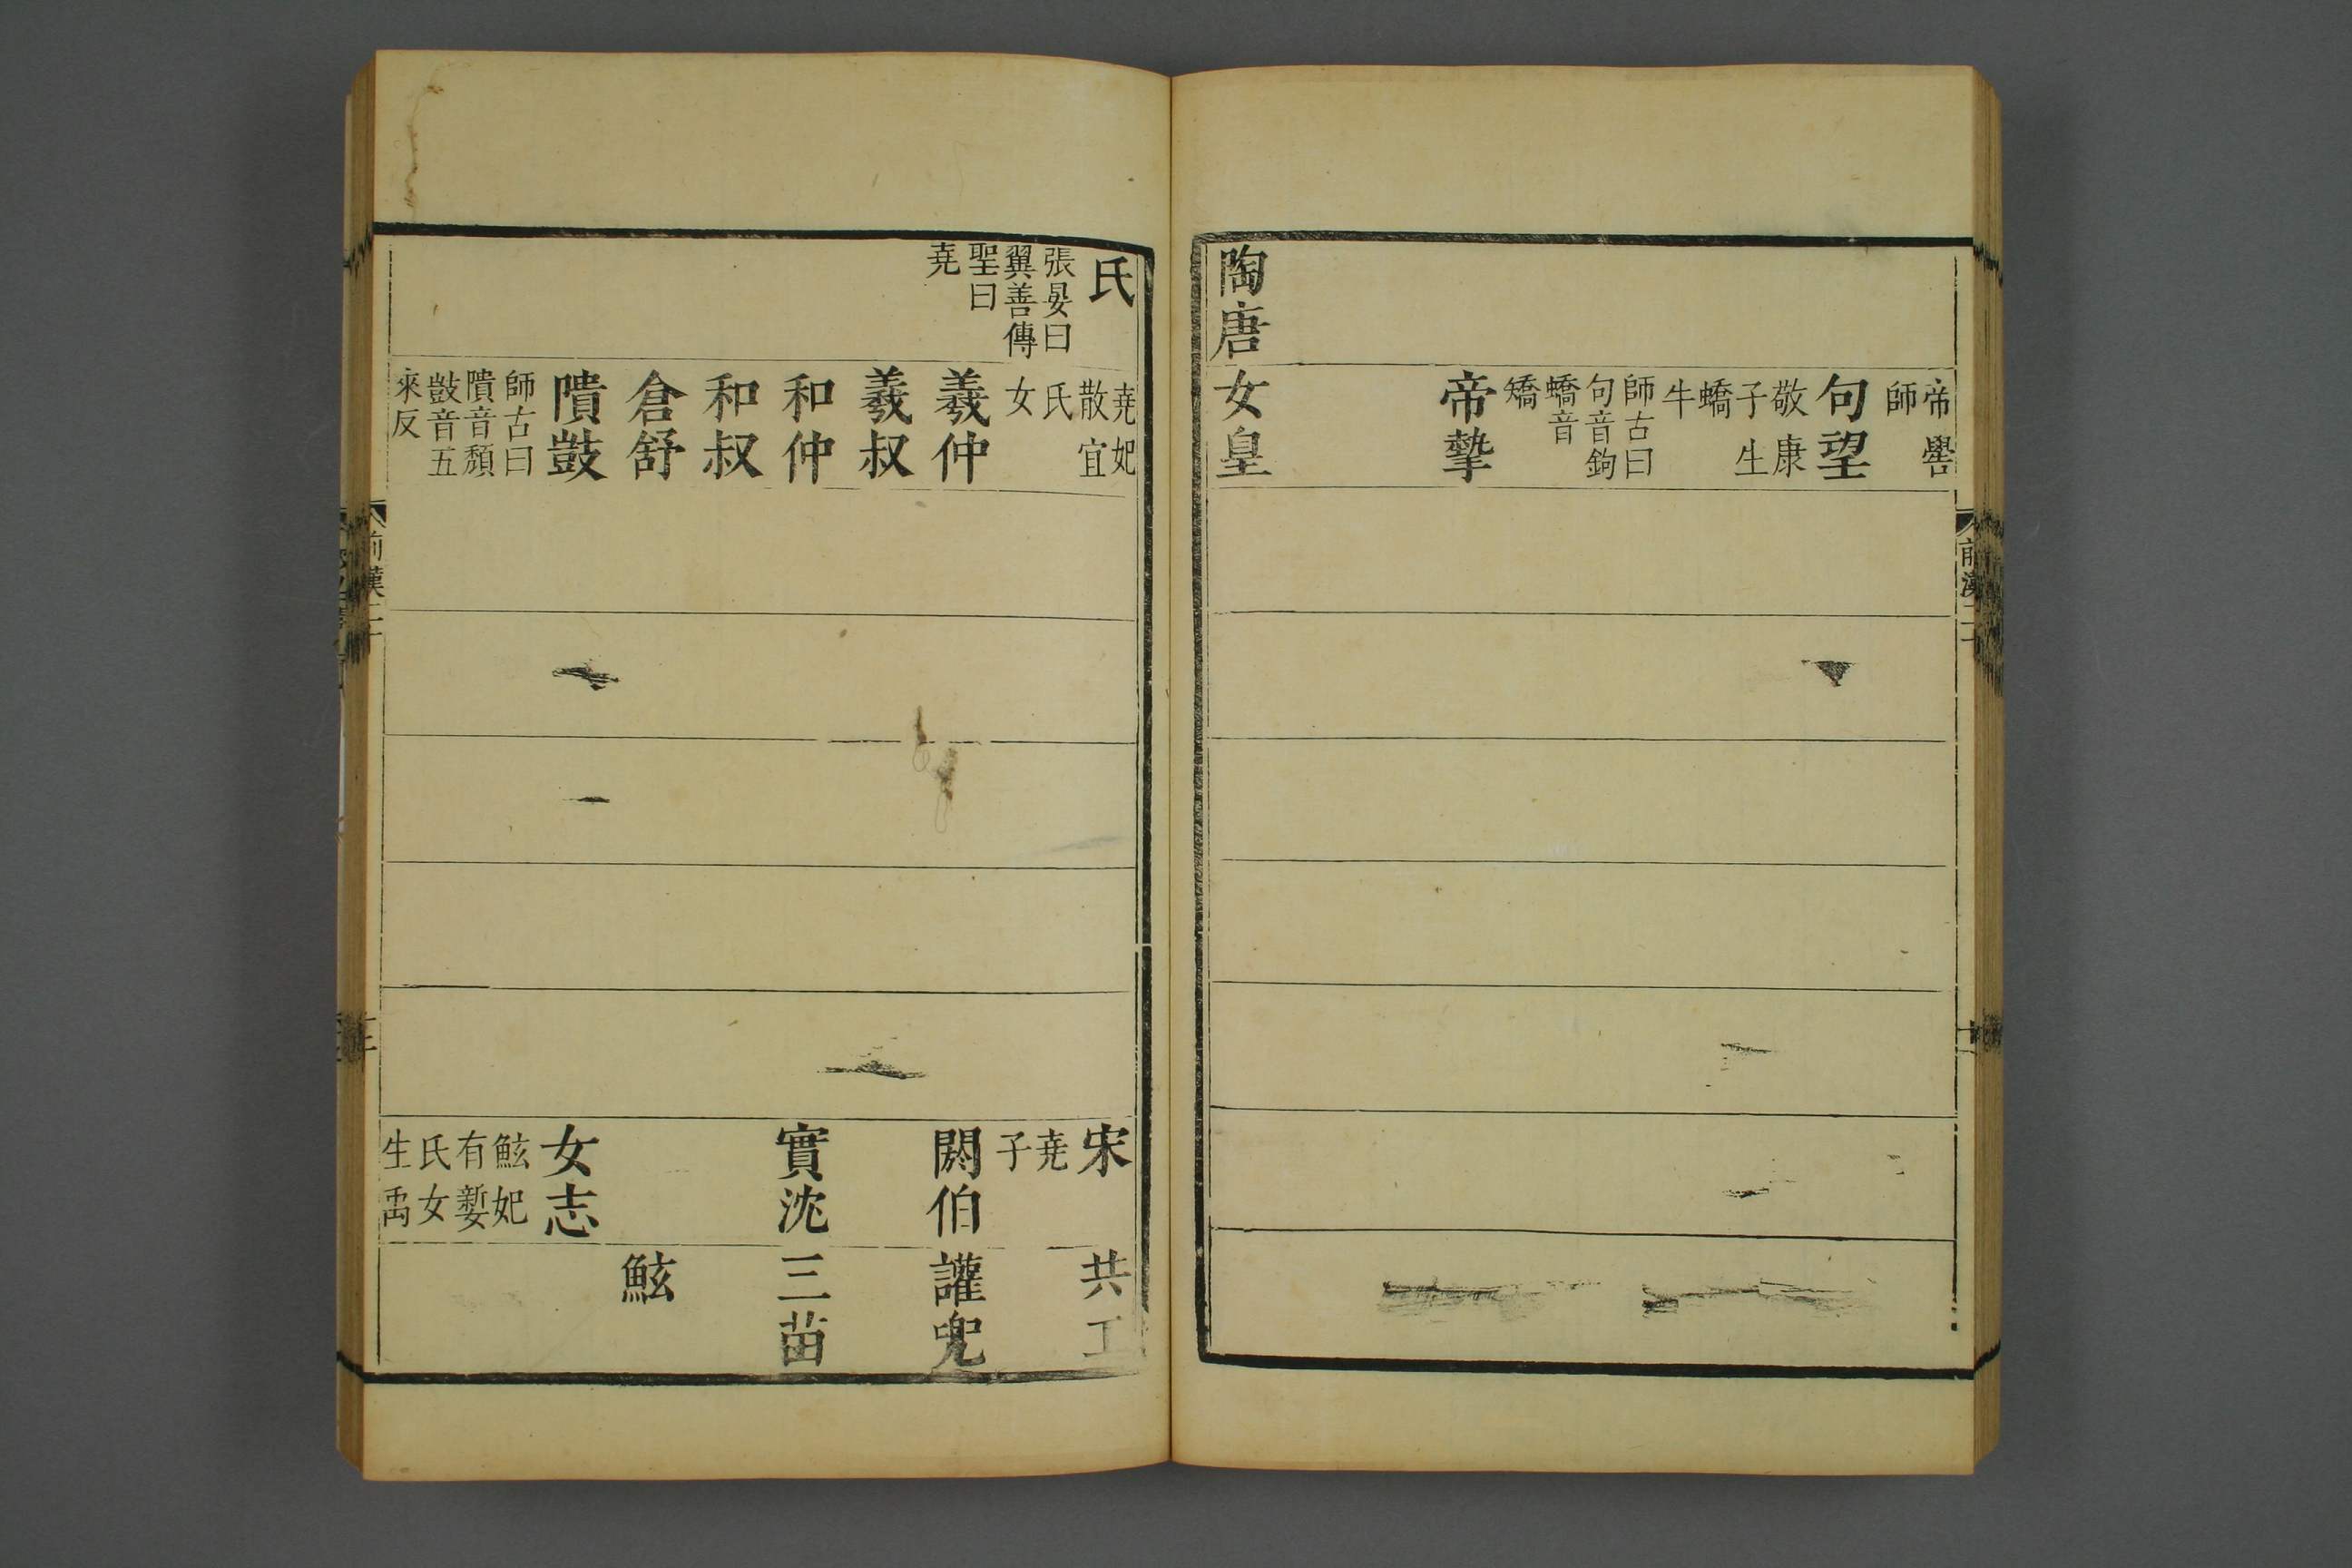 帝嚳
師
句望
敬康
子生
蟜
牛
師古曰
句音鉤
蟜音
矯
帝摯
陶唐
女皇
前漢二十
氏
張晏曰
翼善傳
聖曰
堯
堯妃
散宜
氏
女
羲仲
羲叔
和仲
和叔
倉舒
隤敳
師古曰
隤音頹
敳音五
來反
宋
堯
子
閼伯
實沈
女志
鮌妃
有㜪
氏女
生禹
共工
讙兜
三苗
鮌
前漢二十